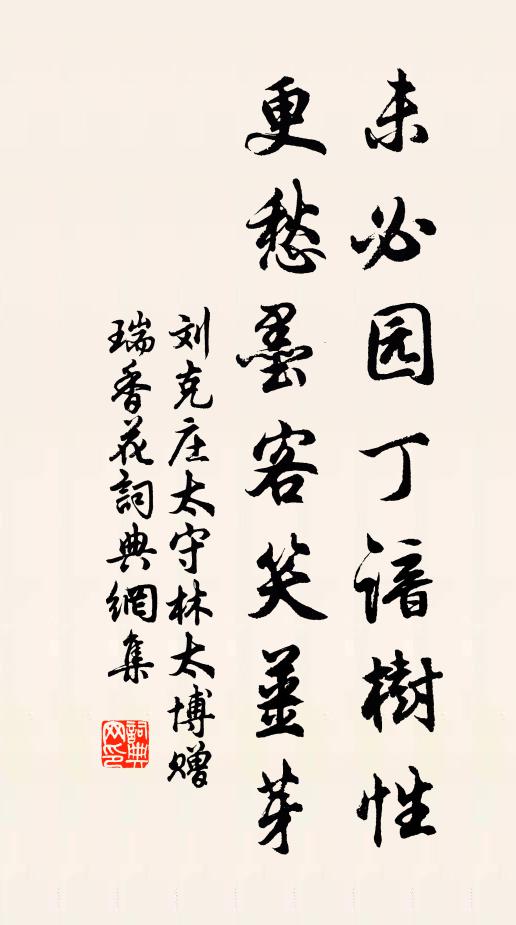 未必园丁谙樹性
更愁墨客笑薑芽
刘克庄太守林太博赠
瑞香花詞典網集
詞典
网印